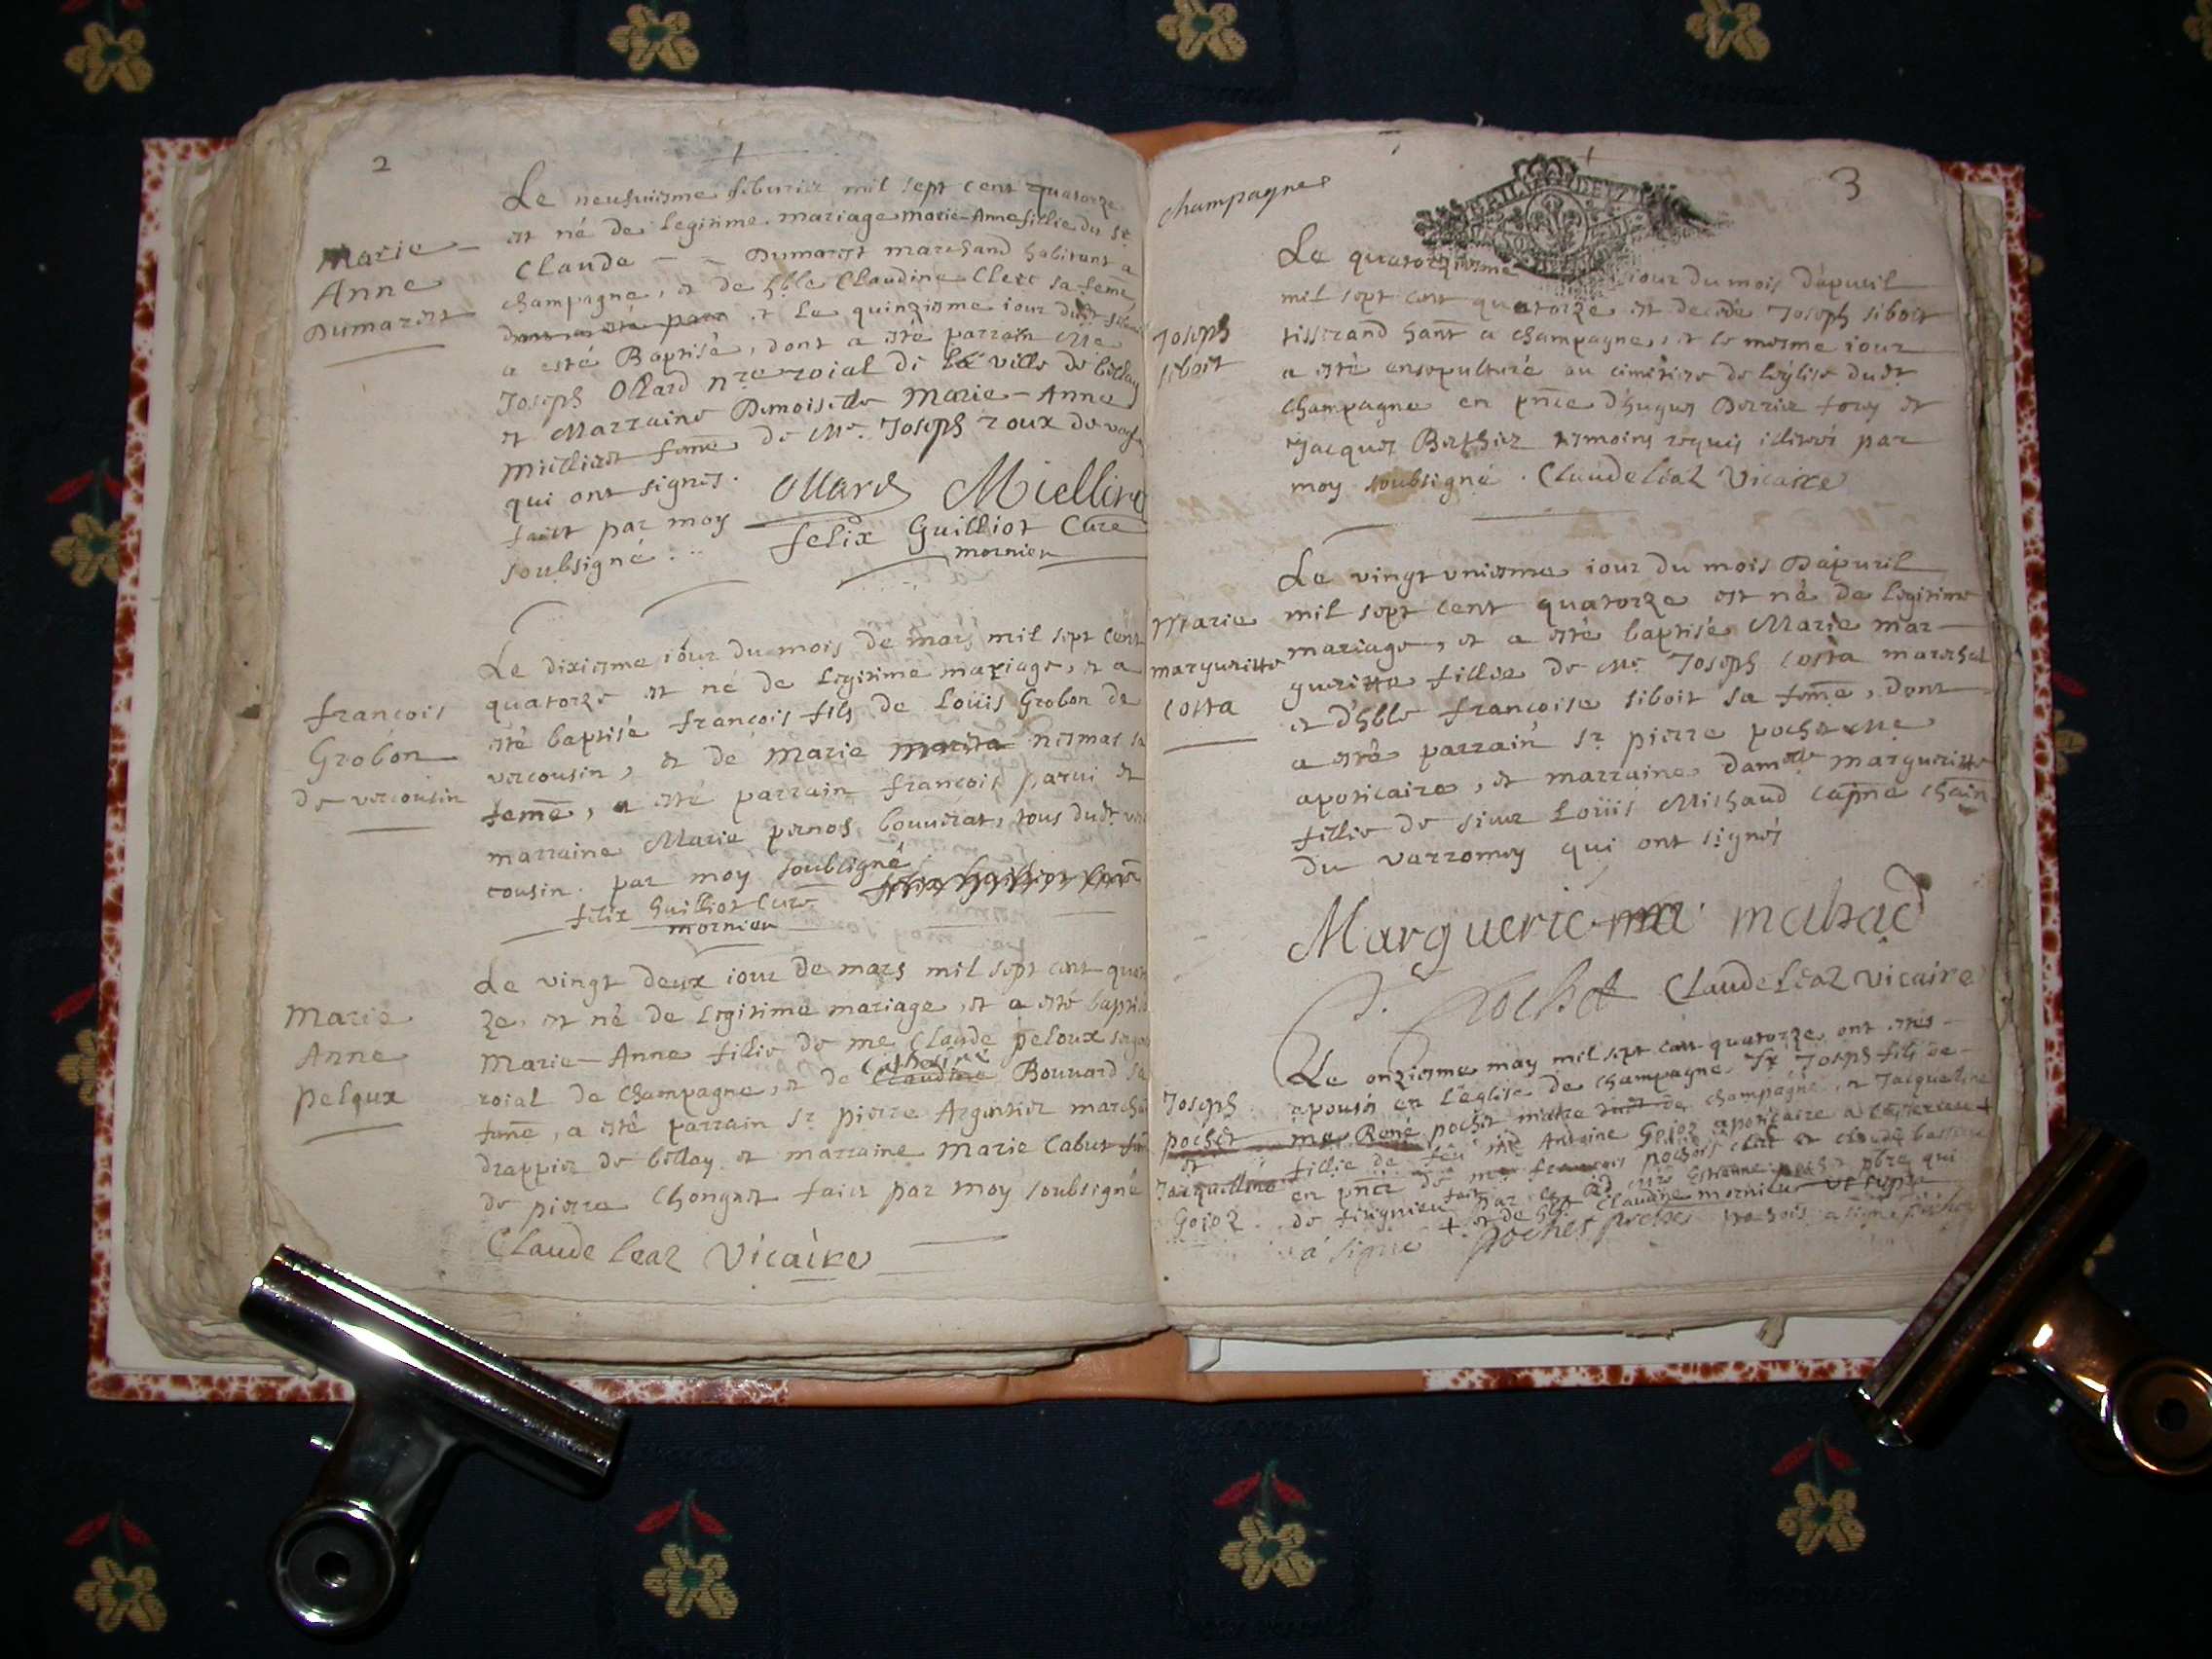 2
Le neufuiesme feburier mil sept cent quatorze
est né de legitime mariage marie-Anne fillie du Sr
Claude - - Dumarest marchand habitant a
champagne, et de hble Claudine Clerc sa feme
et le quinziesme iour dudt
a esté Baptisé, dont a esté parrain Me
Joseph Ollard nre roial de la ville de bellay
et Marraine Dmoiselle Marie-Anne
Millieret feme de Me. Joseph roux de
qui ont signés. Ollard Miellire
faict par moy felix Guilliot Curé
soubsigné. mornieu
Marie
Anne
Dumarest
Le dixiesme iour du mois de mars mil sept cent
quatorze est né de legitime mariage, et a
esté baptisé francois fils de Loüis Grobon de
vercousin, et de Marie niermas sa
feme, a esté parrain francois parui et
marraine Marie pernod bouuerat, tous dudt ver
cousin. par moy soubsigné
felix Guilliot Curé
mornieu
francois
Grobon
de vercousin
Le vingt deux iour de mars mil sept cent quator
ze, est né de legitime mariage, et a esté baptisé
Marie-Anne fillie de me Claude peloux sergent
roial de Champagne, et de Claudine Bouuard sa
feme, a esté parrain Sr pierre Argentier marchd
drappier de bellay et marraine Marie Cabut
de pierre Chongnet faict par moy soubsigné
Claude Leal Vicaire
Marie
Anne
peloux
champagne
3
Le quatorziesme iour du mois d'apuril
mil sept cent quatorze est decede Joseph siboit
tisserand hant a champagne, et le mesme iour
a esté ensepulturé au cimetiere de l'eglise dudt
champagne en pnce d'hugues Perrier et
Jacques Berthier tesmoins requis illitrés par
moy soubsigné. Claude Leal Vicaire
Joseph
siboit
Le vingt vniesme iour du mois Dapuril
mil sept cent quatorze est né de legitime
mariage, et a esté baptisé Marie mar-
gueritte fillie de Me Joseph Costa mareschal
et d'hble francoise siboit sa feme, dont
a esté parrain Sr pierre pochet Me
apoticaire, et marraine damelle margueritte
fillie de sieur Loüis Michaud capne chain
du varromey qui ont signés
Marie
margueritte
costa
Marguerie mihaud
P. Pochet Claude Leal vicaire
Le onziesme may mil sept cent quatorze ont estés
epousés en l'église de champagne Sr Joseph fils de
me René pochet maitre champagne et Jacqueline
fillie de feu me Antoine Gojoz apoticaire a
en pnce de me francois pochet clerc et claude
de par Estienne pochet pbre qui
a signé + et de hble Claudine mornieu
pochet pochet
Joseph
pochet
et
Jacqueline
Gojoz